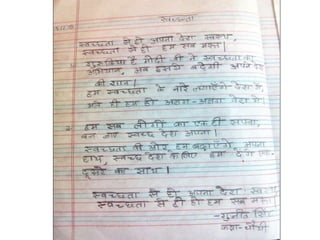 स्वच्छता
स्वच्छता से ही अपना देश स्वस्थ,
स्वच्छता से ही हम सब मस्त।
शुरू किया है मोदी जी ने स्वच्छता का
अभियान, अब इससे बढ़ेगी अपने देश
की शान।
हम स्वच्छता के नारे लगाएँगे देश के,
भले ही हम हो अलग-अलग वेश के।
हम सब लोगों का एक ही सपना,
बन जाए स्वच्छ देश अपना।
स्वच्छता की ओर हम बढ़ाएँगे अपना
हाथ, स्वच्छ देश के लिए हम देंगे एक
दूसरे का साथ।
स्वच्छता से ही अपना देश स्वस्थ
स्वच्छता से ही हम सब मस्त
-सुनीत सिंह
कक्षा-चौथी